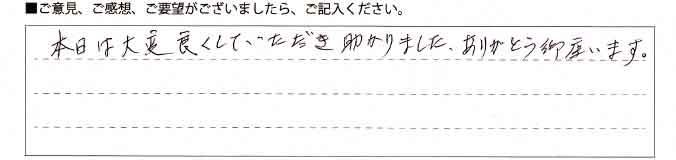 ■ご意見、ご感想、ご要望がございましたら、ご記入ください。
本日は大変良くしていただき助かりました、ありがとう御座います。